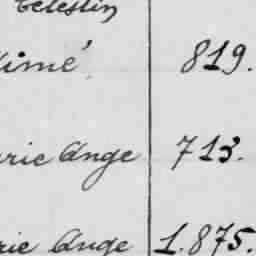 Célestin
Aimé 819.
rie Ange 713.
rie Ange 1.875.